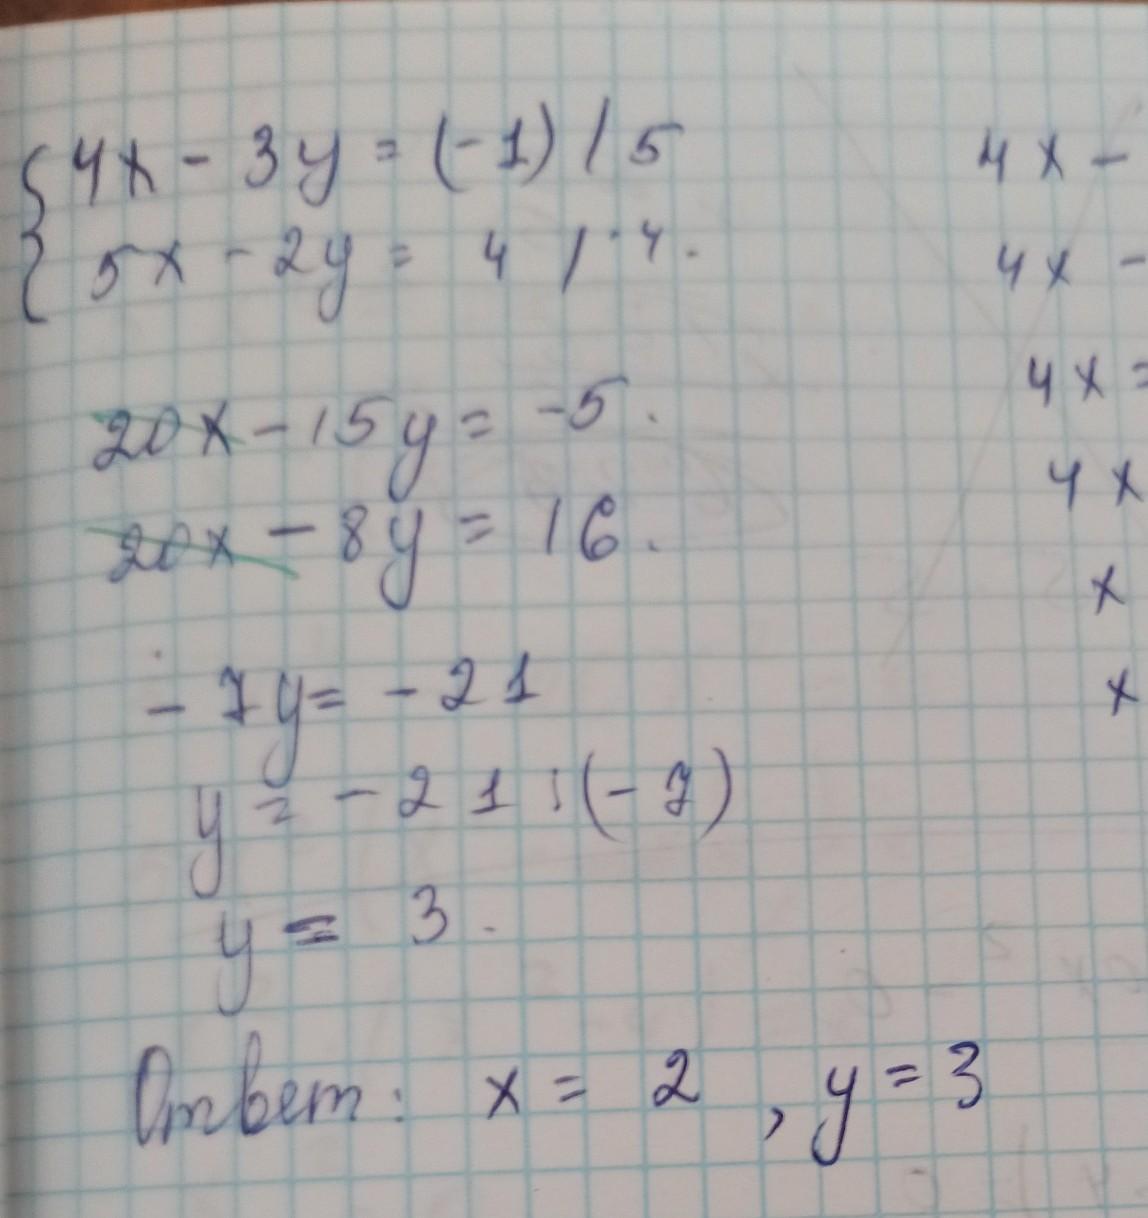 4x - 3y = (-1) / 5
5x - 2y = 4 / · 4.
20x - 15y = -5.
20x - 8y = 16.
- 7y = - 21
y = - 21 : (- 7)
y = 3.
Ответ: x = 2, y = 3
4x -
4x -
4x =
4x
x
x